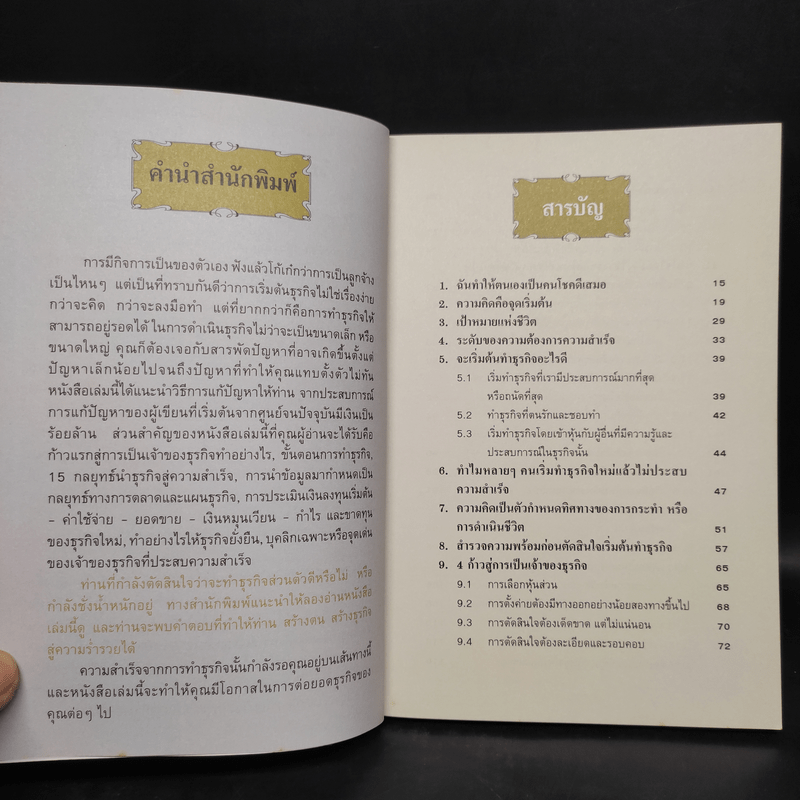 คำนำสำนักพิมพ์
การมีกิจการเป็นของตัวเอง ฟังแล้วโก้เก๋กว่าการเป็นลูกจ้าง
เป็นไหนๆ แต่เป็นที่ทราบกันดีว่าการเริ่มต้นธุรกิจไม่ใช่เรื่องง่าย
กว่าจะคิด กว่าจะลงมือทำ แต่ที่ยากกว่าก็คือการทำธุรกิจให้
สามารถอยู่รอดได้ ในการดำเนินธุรกิจไม่ว่าจะเป็นขนาดเล็ก หรือ
ขนาดใหญ่ คุณก็ต้องเจอกับสารพัดปัญหาที่อาจเกิดขึ้นตั้งแต่
ปัญหาเล็กน้อยไปจนถึงปัญหาที่ทำให้คุณแทบตั้งตัวไม่ทัน
หนังสือเล่มนี้ได้แนะนำวิธีการแก้ปัญหาให้ท่าน จากประสบการณ์
การแก้ปัญหาของผู้เขียนที่เริ่มต้นจากศูนย์จนปัจจุบันมีเงินเป็น
ร้อยล้าน ส่วนสำคัญของหนังสือเล่มนี้ที่คุณผู้อ่านจะได้รับคือ
ก้าวแรกสู่การเป็นเจ้าของธุรกิจทำอย่างไร, ขั้นตอนการทำธุรกิจ,
15 กลยุทธ์นำธุรกิจสู่ความสำเร็จ, การนำข้อมูลมากำหนดเป็น
กลยุทธ์ทางการตลาดและแผนธุรกิจ, การประเมินเงินลงทุนเริ่มต้น
– ค่าใช้จ่าย – ยอดขาย – เงินหมุนเวียน – กำไร และขาดทุน
ของธุรกิจใหม่, ทำอย่างไรให้ธุรกิจยั่งยืน, บุคลิกเฉพาะหรือจุดเด่น
ของเจ้าของธุรกิจที่ประสบความสำเร็จ
ท่านที่กำลังตัดสินใจว่าจะทำธุรกิจส่วนตัวดีหรือไม่ หรือ
กำลังชั่งน้ำหนักอยู่ ทางสำนักพิมพ์แนะนำให้ลองอ่านหนังสือ
เล่มนี้ดู และท่านจะพบคำตอบที่ทำให้ท่าน สร้างตน สร้างธุรกิจ
สู่ความร่ำรวยได้
ความสำเร็จจากการทำธุรกิจนั้นกำลังรอคุณอยู่บนเส้นทางนี้
และหนังสือเล่มนี้จะทำให้คุณมีโอกาสในการต่อยอดธุรกิจของ
คุณต่อๆ ไป
สารบัญ
1. ฉันทำให้ตนเองเป็นคนโชคดีเสมอ 15
2. ความคิดคือจุดเริ่มต้น 19
3. เป้าหมายแห่งชีวิต 29
4. ระดับของความต้องการความสำเร็จ 33
5. จะเริ่มต้นทำธุรกิจอะไรดี 39
5.1 เริ่มทำธุรกิจที่เรามีประสบการณ์มากที่สุด
หรือถนัดที่สุด 39
5.2 ทำธุรกิจที่ตนรักและชอบทำ 42
5.3 เริ่มทำธุรกิจโดยเข้าหุ้นกับผู้อื่นที่มีความรู้และ
ประสบการณ์ในธุรกิจนั้น 44
6. ทำไมหลายๆ คนเริ่มทำธุรกิจใหม่แล้วไม่ประสบ
ความสำเร็จ 47
7. ความคิดเป็นตัวกำหนดทิศทางของการกระทำ หรือ
การดำเนินชีวิต 51
8. สำรวจความพร้อมก่อนตัดสินใจเริ่มต้นทำธุรกิจ 57
9. 4 ก้าวสู่การเป็นเจ้าของธุรกิจ 65
9.1 การเลือกหุ้นส่วน 65
9.2 การตั้งค่ายต้องมีทางออกอย่างน้อยสองทางขึ้นไป 68
9.3 การตัดสินใจต้องเด็ดขาด แต่ไม่แน่นอน 70
9.4 การตัดสินใจต้องละเอียดและรอบคอบ 72